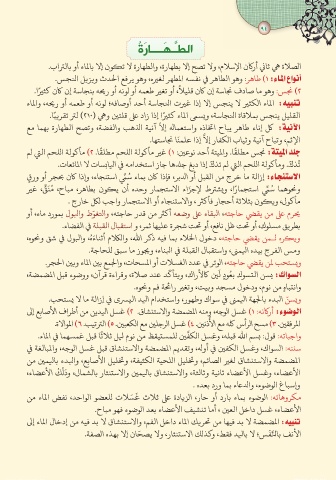 الطَّهَارَةُ
الصلاة هي ثاني أركان الإسلام، ولا تصح إلا بطهارة، والطهارة لا تكون إلا بالماء أو بالتراب.
أنواع الماء: ١) طاهر: وهو الطاهر في نفسه المطهر لغيره، وهو يرفع الحدث ويزيل النجس.
٢) نجس: وهو ما صادف نجاسة إن كان قليلاً، أو تغير طعمه أو لونه أو ريحه بنجاسة إن كان كثيرًا.
تنبيه: الماء الكثير لا ينجس إلا إذا غيرت النجاسة أحد أوصافه: لونه أو طعمه أو ريحه، والماء
القليل ينجس بملاقاة النجاسة، ويسمى الماء كثيرًا إذا زاد على قلتين وهي (٢١٠) لتر تقريبًا.
الآنية: كل إناء طاهر يباح اتخاذه واستعماله إلا آنية الذهب والفضة، وتصح الطهارة بهما مع
الإثم، وتباح آنية وثياب الكفار إلا إذا علمنا نجاستها.
جلد الميتة: نجس مطلقًا. والميتة أحد نوعين: ١) غير مأكولة اللحم مطلقًا. ٢) مأكولة اللحم التي لم
تذك. ومأكولة اللحم التي لم تذك إذا دبغ جلدها جاز استخدامه في اليابسات لا المائعات.
الاستنجاء: إزالة ما خرج من القبل أو الدبر، فإذا كان بماء سُمِّي استنجاء، وإذا كان بحجر أو ورق
ونحوهما سُمِّي استجمارًا، ويشترط لإجزاء الاستجمار وحده أن يكون بطاهر، مباح، مُنَقٍّ، غير
مأكول، ويكون بثلاثة أحجار فأكثر، والاستنجاء أو الاستجمار واجب لكل خارج.
يحرم على من يقضي حاجته: البقاء على وضعه أكثر من قدر حاجته، والتغوط والبول بمورد ماء، أو
بطريق مسلوك، أو تحت ظل نافع، أو تحت شجرة عليها ثمر، و استقبال القبلة في الفضاء.
ويكره لمن يقضي حاجته: دخول الخلاء بما فيه ذكر الله، والكلام أثناءه، والبول في شق ونحوه،
ومس الفرج بيده اليمنى، واستقبال القبلة في البناء، ويجوز ما سبق للحاجة.
ويستحب لمن يقضي حاجته: الوتر في عدد الغسلات أو المسحات، والجمع بين الماء وبين الحجر.
السواك: يسن التسوك بعود لين كالأراك، ويتأكد عند صلاة، وقراءة قرآن، ووضوء قبل المضمضة،
وانتباه من نوم، ودخول مسجد وبيت، وتغير رائحة فم ونحوه.
ويسن البدء بالجهة اليمنى في سواك وطهور، واستخدام اليد اليسرى في إزالة ما لا يستحب.
الوضوء: أركانه: ١) غسل الوجه، ومنه المضمضة والاستنشاق. ٢) غسل اليدين من أطراف الأصابع إلى
المرفقين. ٣) مسح الرأس كله مع الأذنين. ٤) غسل الرجلين مع الكعبين. ٥) الترتيب. ٦) الموالاة.
واجباته: قول: بسم الله قبله، وغسل الكفين للمستيقظ من نوم ليل ثلاثًا قبل غمسهما في الماء.
سننه: السواك، وغسل الكفين في أوله، وتقديم المضمضة والاستنشاق قبل غسل الوجه، والمبالغة في
المضمضة والاستنشاق لغير الصائم، وتخليل اللحية الكثيفة، وتخليل الأصابع، والبدء باليمين من
الأعضاء، وغسل الأعضاء ثانية وثالثة، والاستنشاق باليمين والاستنثار بالشمال، ودَلْكُ الأعضاء،
وإسباغ الوضوء، والدعاء بما ورد بعده.
مكروهاته: الوضوء بماء بارد أو حار، الزيادة على ثلاث غسلات للعضو الواحد، نفض الماء من
الأعضاء، غسل داخل العين، أما تنشيف الأعضاء بعد الوضوء فهو مباح.
تنبيه: المضمضة لا بد فيها من تحريك الماء داخل الفم، والاستنشاق لا بد فيه من إدخال الماء إلى
الأنف بالتنفس، لا باليد فقط، وكذلك الاستنثار، ولا يصحان إلا بهذه الصفة.